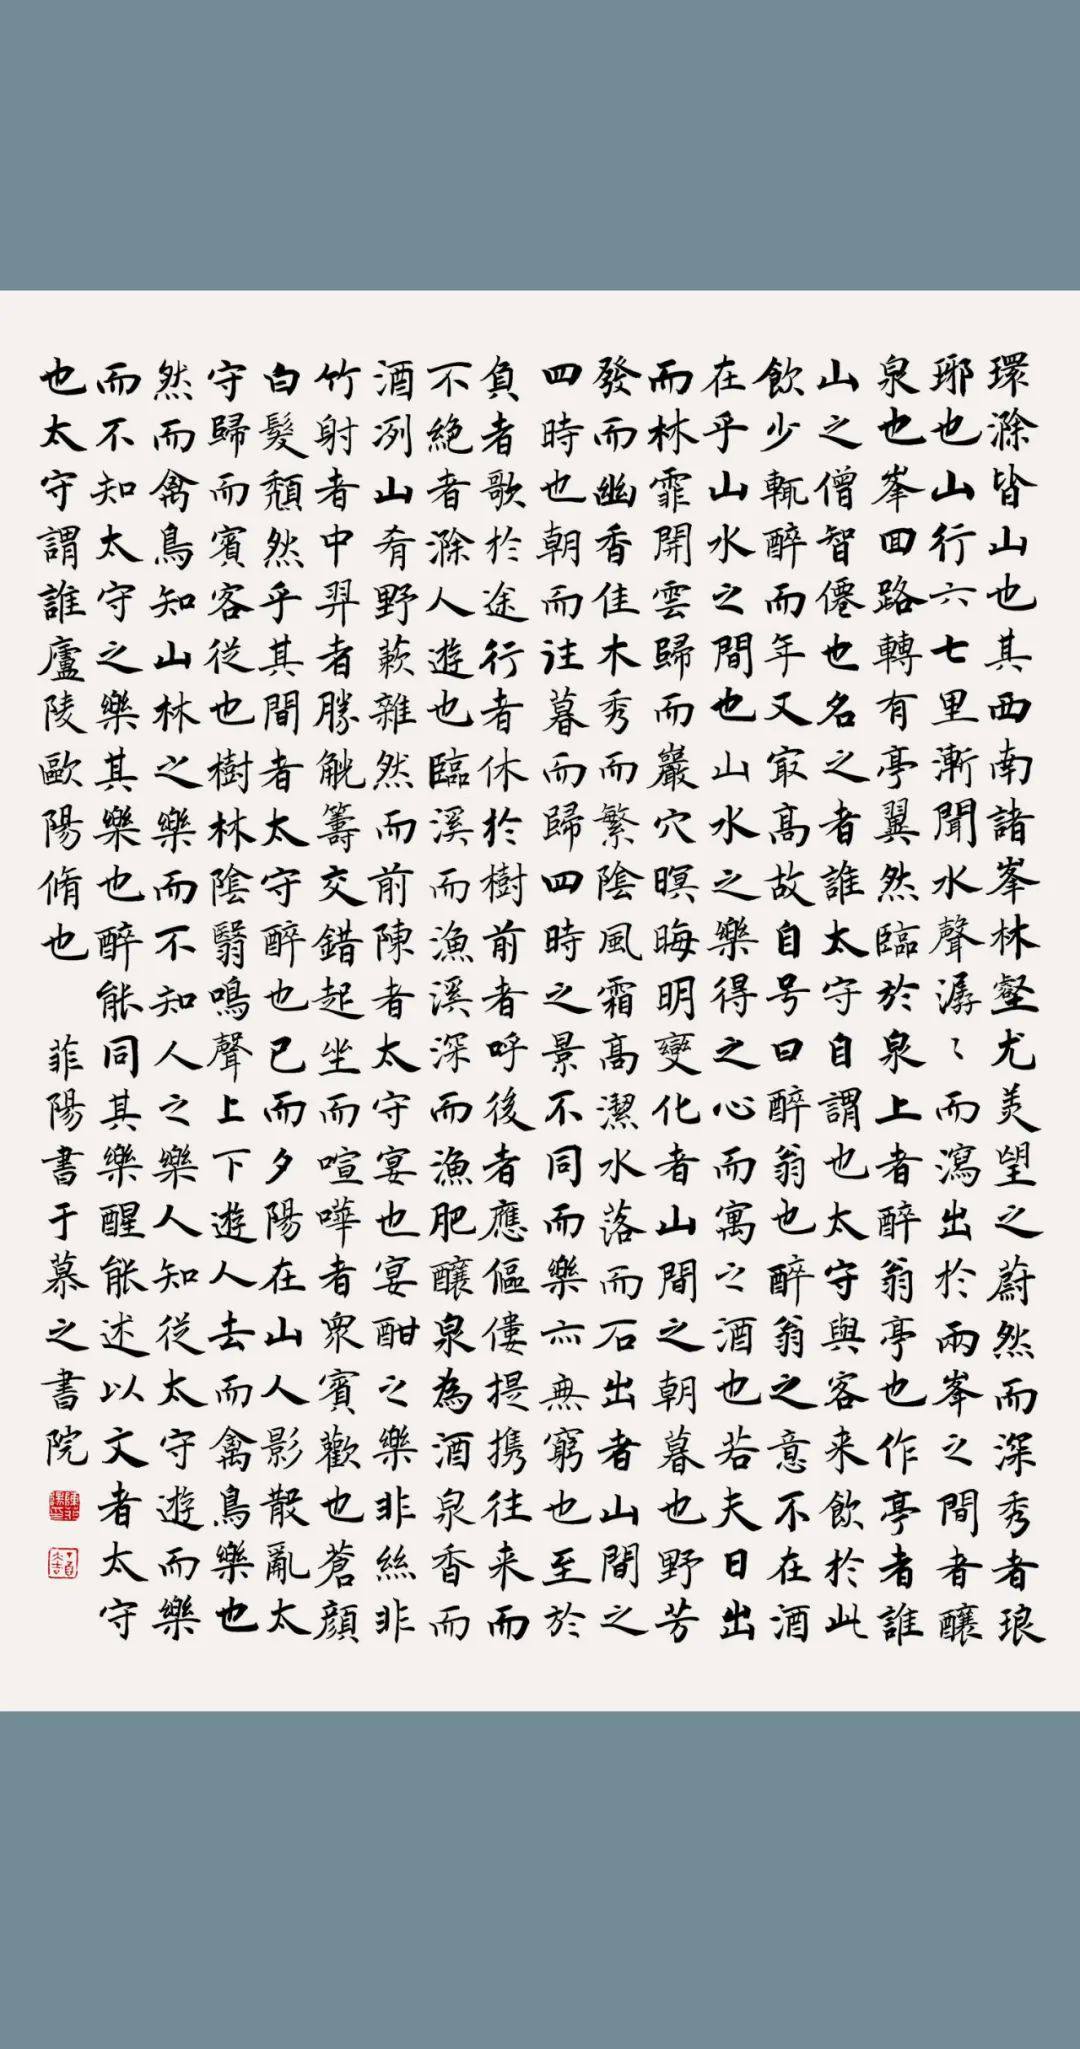 環滁皆山也其西南諸峯林壑尤美望之蔚然而深秀者琅
耶也山行六七里漸聞水聲潺〻而瀉出於兩峯之間者釀
泉也峯回路轉有亭翼然臨於泉上者醉翁亭也作亭者誰
山之僧智僊也名之者誰太守自謂也太守與客来飲於此
飲少輒醉而年又冣高故自号曰醉翁也醉翁之意不在酒
在乎山水之間也山水之樂得之心而寓之酒也若夫日出
而林霏開雲歸而巖穴暝晦明變化者山間之朝暮也野芳
發而幽香佳木秀而繁陰風霜高潔水落而石出者山間之
四時也朝而往暮而歸四時之景不同而樂亦無窮也至於
負者歌於途行者休於樹前者呼後者應傴僂提携往来而
不絶者滁人遊也臨溪而漁溪深而漁肥釀泉為酒泉香而
酒冽山肴野蔌雜然而前陳者太守宴也宴酣之樂非絲非
竹射者中弈者勝觥籌交錯起坐而喧嘩者衆賓歡也蒼顔
白髮頹然乎其間者太守醉也已而夕陽在山人影散亂太
守歸而賓客從也樹林陰翳鳴聲上下遊人去而禽鳥樂也
然而禽鳥知山林之樂而不知人之樂人知從太守遊而樂
而不知太守之樂其樂也醉能同其樂醒能述以文者太守
也太守謂誰廬陵歐陽脩也
菲陽書于慕之書院